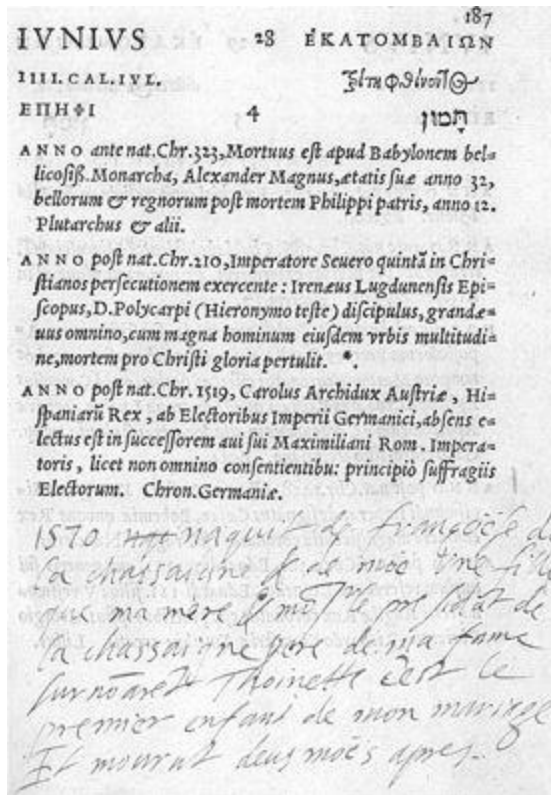 187
IVNIVS 28 ἙΚΑΤΟΜΒΑΙΩΝ
IIII. CAL. IVL.
ΕΠΗΦΙ 4 תָּמוּז
ANNO ante nat. Chr. 323, Mortuus est apud Babylonem bel-
licosiß. Monarcha, Alexander Magnus, ætatis suæ anno 32,
bellorum & regnorum post mortem Philippi patris, anno 12.
Plutarchus & alii.
ANNO post nat. Chr. 210, Imperatore Seuero quintā in Chri-
stianos persecutionem exercente: Irenæus Lugdunensis Epi-
scopus, D. Polycarpi (Hieronymo teste) discipulus, grandæ-
uus omnino, cum magna hominum eiusdem vrbis multitudi-
ne, mortem pro Christi gloria pertulit. *.
ANNO post nat. Chr. 1519, Carolus Archidux Austriæ, Hi-
spaniarū Rex, ab Electoribus Imperii Germanici, absens e-
lectus est in successorem aui sui Maximiliani Rom. Impera-
toris, licet non omnino consentientibu: principiò suffragiis
Electorum. Chron. Germaniæ.
1570 naquit de françoise de
la chassaigne & de moē une fille
que ma mere & mosr le presidāt de
la chassaigne pere de ma fame
surnōarēt Thoinette c'est le
premier enfant de mon mariage
Et mourut deus moēs apres.